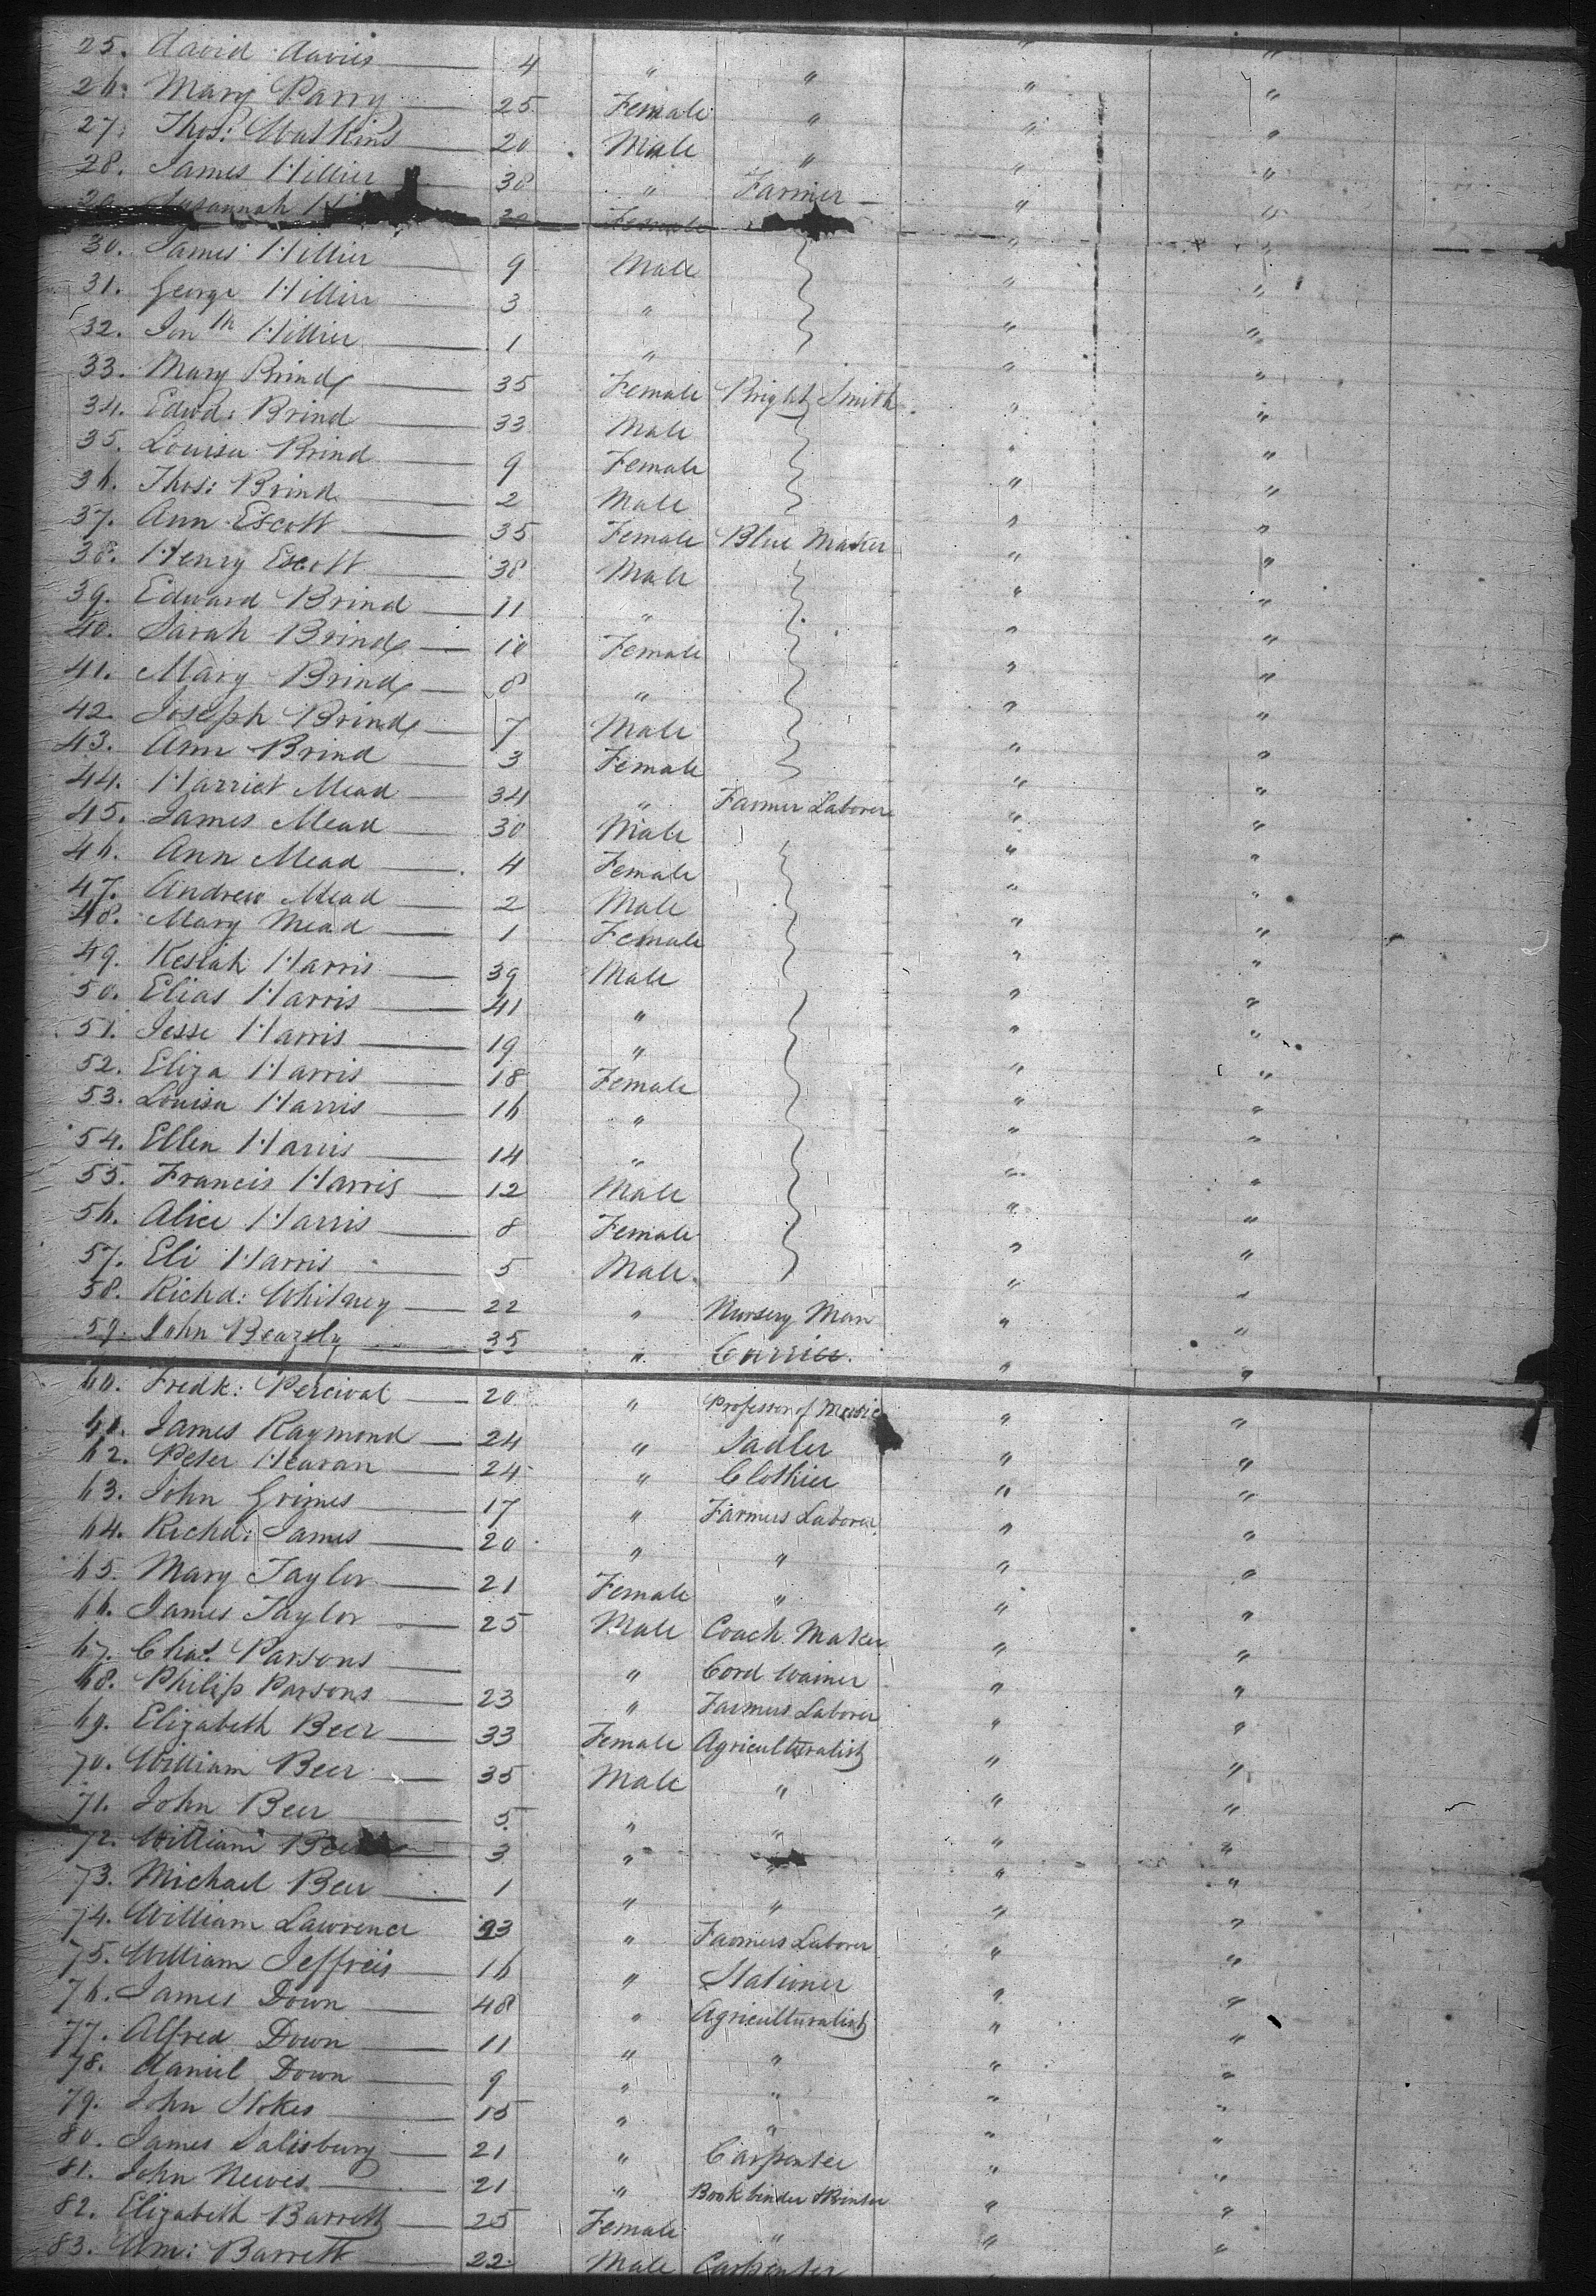 25. David Davies 4 " " " "
26. Mary Parry 25 Female " " "
27. Thos: Watkins 20 Male " " "
28. James Hillier 38 " Farmer " "
29. Susannah 30 Female " "
30. James Hillier 9 Male " "
31. George Hillier 3 " " "
32. Jonth Hillier 1 " " "
33. Mary Brind 35 Female Bright Smith " "
34. Edwd: Brind 33 Male " "
35. Louisa Brind 9 Female " "
36. Thos: Brind 2 Male " "
37. Ann Escott 35 Female Blue Maker " "
38. Henry Escott 38 Male " "
39. Edward Brind 11 " " "
40. Sarah Brind 10 Female " "
41. Mary Brind 8 " " "
42. Joseph Brind 7 Male " "
43. Ann Brind 3 Female " "
44. Harriet Mead 34 " Farmer Laborer " "
45. James Mead 30 Male " "
46. Ann Mead 4 Female " "
47. Andrew Mead 2 Male " "
48. Mary Mead 1 Female " "
49. Kesiah Harris 39 Male " "
50. Elias Harris 41 " " "
51. Jesse Harris 19 " " "
52. Eliza Harris 18 Female " "
53. Louisa Harris 16 " " "
54. Ellen Harris 14 " " "
55. Francis Harris 12 Male " "
56. Alice Harris 8 Female " "
57. Eli Harris 5 Male " "
58. Richd: Whitney 22 " Nursery Man " "
59. John Beazely 35 " Currier. " "
60. Fredk: Percival 20 " Professor of Music " "
61. James Raymond 24 " Sadler " "
62. Peter Hearan 24 " Clothier " "
63. John Grimes 17 " Farmers Laborer " "
64. Richd: James 20 " " " "
65. Mary Taylor 21 Female " " "
66. James Taylor 25 Male Coach Maker " "
67. Chas. Parsons " Cord wainer " "
68. Philip Parsons 23 " Farmers Laborer " "
69. Elizabeth Beer 33 Female Agriculturalist " "
70. William Beer 35 Male " " "
71. John Beer 5 " " " "
72. William Beer 3 " " " "
73. Michael Beer 1 " " " "
74. William Lawrence 23 " Farmers Laborer " "
75. William Jeffreis 16 " Stationer " "
76. James Down 48 " Agriculturalist " "
77. Alfred Down 11 " " " "
78. Daniel Down 9 " " " "
79. John Stokes 15 " " " "
80. James Salisbury 21 " Carpenter " "
81. John Newes 21 " Book binder & Printer " "
82. Elizabeth Barrett 25 Female " " "
83. Wm: Barrett 22 Male Carpenter " "